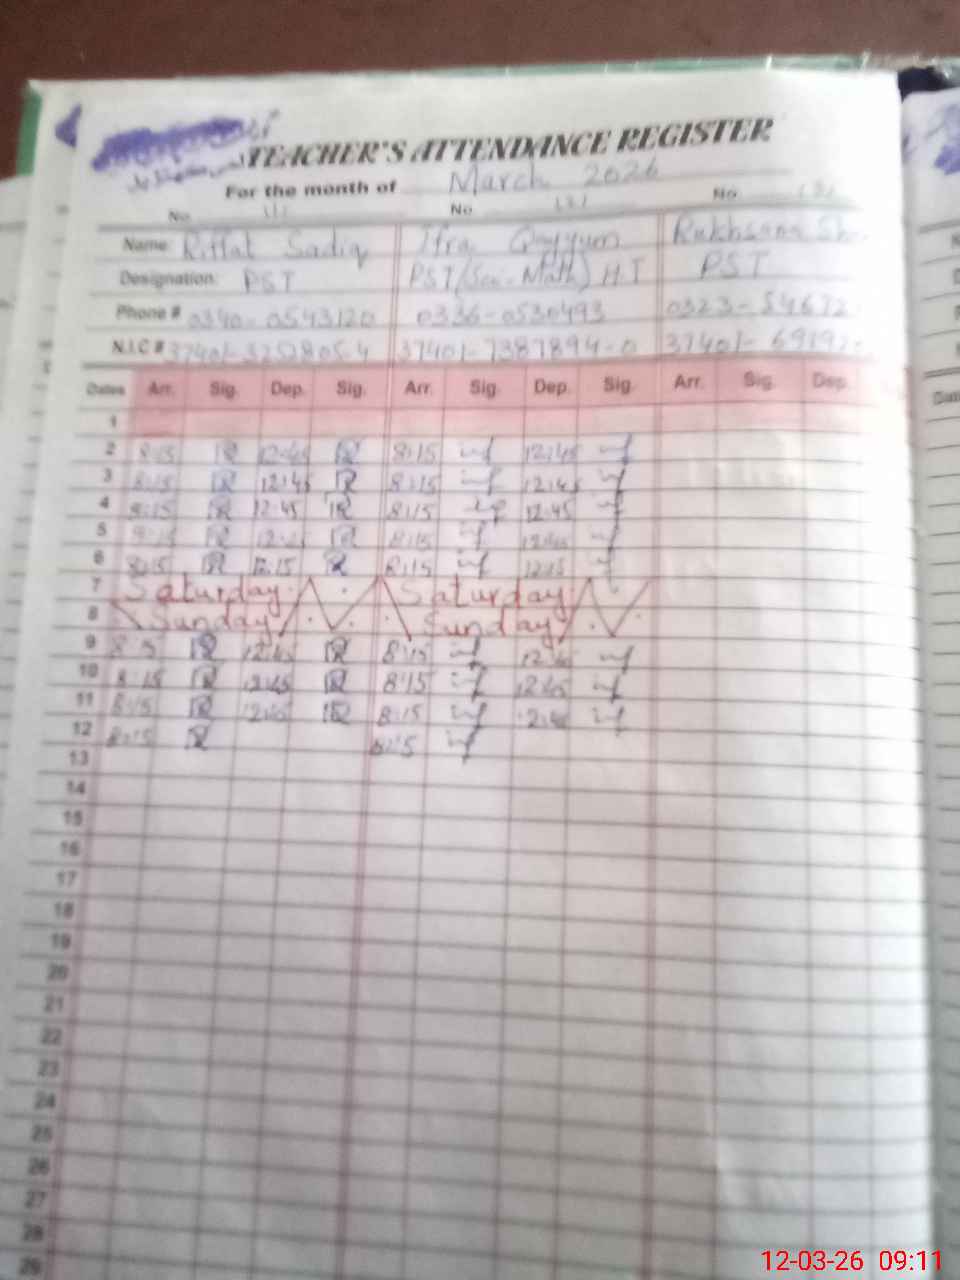 TEACHER'S ATTENDANCE REGISTER
For the month of March 2026
No. 1 No 2 No 3
Name: Riffat Sadiq Ifra Qayyum Rukhsana Sh
Designation: PST PST (Sci-Math) HT PST
Phone # 0340-0543120 0336-0530493 0323-54672
N.I.C # 37401- 37401-7387894-0 37401-69192
Dates Arr. Sig. Dep. Sig. Arr. Sig. Dep. Sig. Arr. Sig. Dep.
1
2 8:15 12:45 8:15 12:45
3 8:15 12:45 8:15 12:45
4 8:15 12:45 8:15 12:45
5 8:15 8:15 12:45
6 8:15 12:15 8:15 12:15
7 Saturday Saturday
8 Sunday Sunday
9 8:15 12:45 8:15 12:45
10 8:15 12:45 8:15 12:45
11 8:15 12:45 8:15 12:45
12 8:15 8:15
13
14
15
16
17
18
19
20
21
22
23
24
25
26
27
28
29
12-03-26 09:11